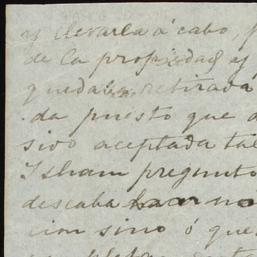 y llevarla á cabo,
de la propiedad y
quedaba retirada
da puesto que
sivo aceptada tal
Isham pregunto
deseaba hacer no
cion sino ó que